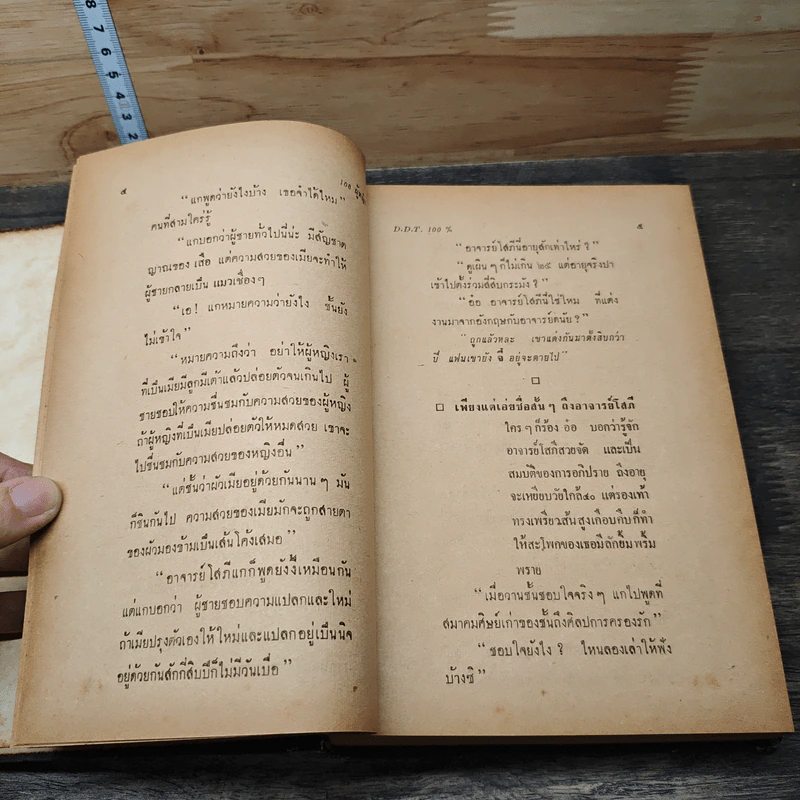 8
7
6
5
4
3
2
๔
“แกพูดว่ายังไงบ้าง เธอจำได้ไหม”
คนที่สามใคร่รู้
“แกบอกว่าผู้ชายทั่วไปนี่น่ะ มีสัญชาต
ญาณของ เสือ แต่ความสวยของเมียจะทำให้
ผู้ชายกลายเป็น แมวเชื่องๆ
“เอ! แกหมายความว่ายังไง ชั้นยัง
ไม่เข้าใจ”
“หมายความถึงว่า อย่าให้ผู้หญิงเรา
ที่เป็นเมียมีลูกมีเต้าแล้วปล่อยตัวจนเกินไป ผู้
ชายชอบให้ความชื่นชมกับความสวยของผู้หญิง
ถ้าผู้หญิงที่เป็นเมียปล่อยตัวให้หมดสวย เขาจะ
ไปชื่นชมกับความสวยของหญิงอื่น”
“แต่ชั้นว่าผัวเมียอยู่ด้วยกันนานๆ มัน
ก็ชินกันไป ความสวยของเมียมักจะถูกสายตา
ของผัวมองข้ามเป็นเส้นโค้งเสมอ”
“อาจารย์โสภีแกก็พูดยังงี้เหมือนกัน
แต่แกบอกว่า ผู้ชายชอบความแปลกและใหม่
ถ้าเมียปรุงตัวเองให้ใหม่และแปลกอยู่เป็นนิจ
อยู่ด้วยกันสักกี่สิบปีก็ไม่มีวันเบื่อ”
D.D.T. 100 %
๕
“อาจารย์โสภีนี่อายุสักเท่าไหร่?”
“ดูเผินๆ ก็ไม่เกิน ๒๕ แต่อายุจริงปา
เข้าไปตั้งร่วมสี่สิบกระมัง?”
“อ๋อ อาจารย์โสภีนี่ใช่ไหม ที่แต่ง
งานมาจากอังกฤษกับอาจารย์ดนัย?”
“ถูกแล้วหละ เขาแต่งกันมาตั้งสิบกว่า
ปี แฟนเขายัง จี๋ อยู่จะตายไป”
□ เพียงแต่เอ่ยชื่อสั้นๆ ถึงอาจารย์โสภี
ใครๆ ก็ร้อง อ๋อ บอกว่ารู้จัก
อาจารย์โสภีสวยจัด และเป็น
สมบัติของการอภิปราย ถึงอายุ
จะเหยียบวัยใกล้๔๐ แต่รองเท้า
ทรงเพรียวส้นสูงเกือบคืบก็ทำ
ให้สะโพกของเธอมีลักยิ้มพริ้ม
พราย
“เมื่อวานชั้นชอบใจจริงๆ แกไปพูดที่
สมาคมศิษย์เก่าของชั้นถึงศิลปการครองรัก”
“ชอบใจยังไง? ไหนลองเล่าให้ฟัง
บ้างซิ”